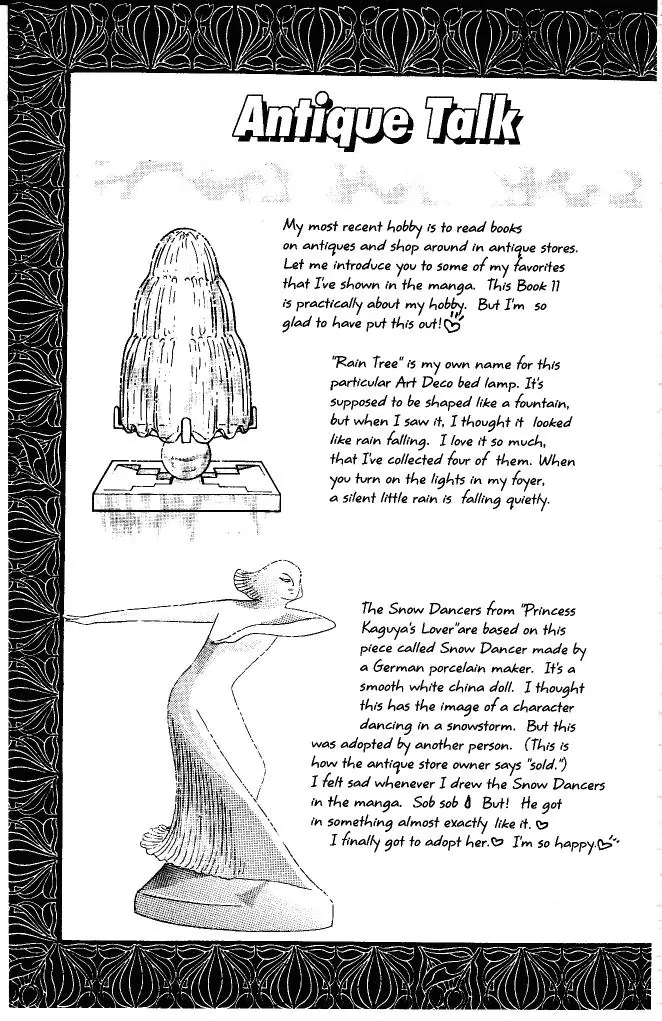 Antique Talk
My most recent hobby is to read books
on antiques and shop around in antique stores.
Let me introduce you to some of my favorites
that I've shown in the manga. This Book 11
is practically about my hobby. But I'm so
glad to have put this out!
"Rain Tree" is my own name for this
particular Art Deco bed lamp. It's
supposed to be shaped like a fountain,
but when I saw it, I thought it looked
like rain falling. I love it so much,
that I've collected four of them. When
you turn on the lights in my foyer,
a silent little rain is falling quietly.
The Snow Dancers from "Princess
Kaguya's Lover"are based on this
piece called Snow Dancer made by
a German porcelain maker. It's a
smooth white china doll. I thought
this has the image of a character
dancing in a snowstorm. But this
was adopted by another person. (This is
how the antique store owner says "sold.")
I felt sad whenever I drew the Snow Dancers
in the manga. Sob sob But! He got
in something almost exactly like it. ♡
I finally got to adopt her.♡ I'm so happy.♡